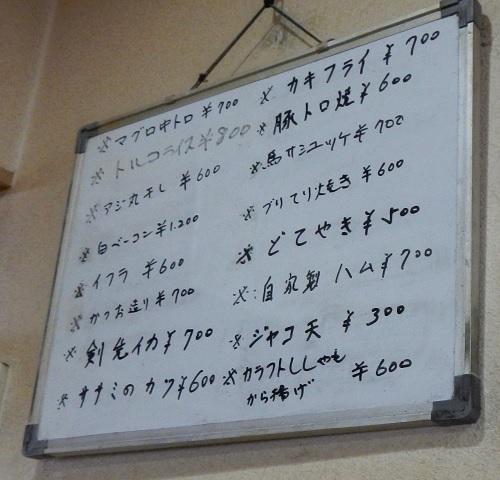 ※マグロ中トロ ¥700
※トルコライス¥800
※アジ丸干し ¥600
※白ベーコン¥1.200
※イクラ ¥600
※かつお造り¥700
※剣先イカ¥700
※ササミのカツ¥600
※カキフライ ¥700
※豚トロ焼¥600
※馬サシユッケ¥700
※ブリてり焼き ¥600
※どてやき¥500
※自家製 ハム¥700
※ジャコ天 ¥300
※カラフトししゃも
から揚げ ¥600